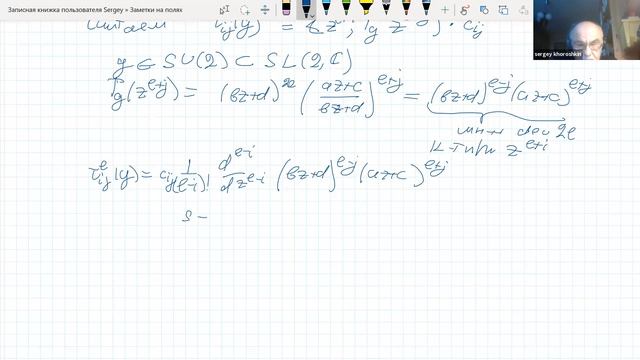 Записная книжка пользователя Sergey – Заметки на полях
sergey khoroshkin
считаем
g ∈ SU(2) ⊂ SL(2,ℂ)
T_g(z^{e+j}) = (bz+d)^{2e} (\frac{az+c}{bz+d})^{e+j} = (bz+d)^{e-j}(az+c)^{e+j}
мн-н deg 2e
к-т при z^{e+i}
τ^e_{ij}(g) = c_{ij} \frac{1}{(e-i)!} \frac{d^{e-i}}{dz^{e-i}} (bz+d)^{e-j}(az+c)^{e+j}
s –